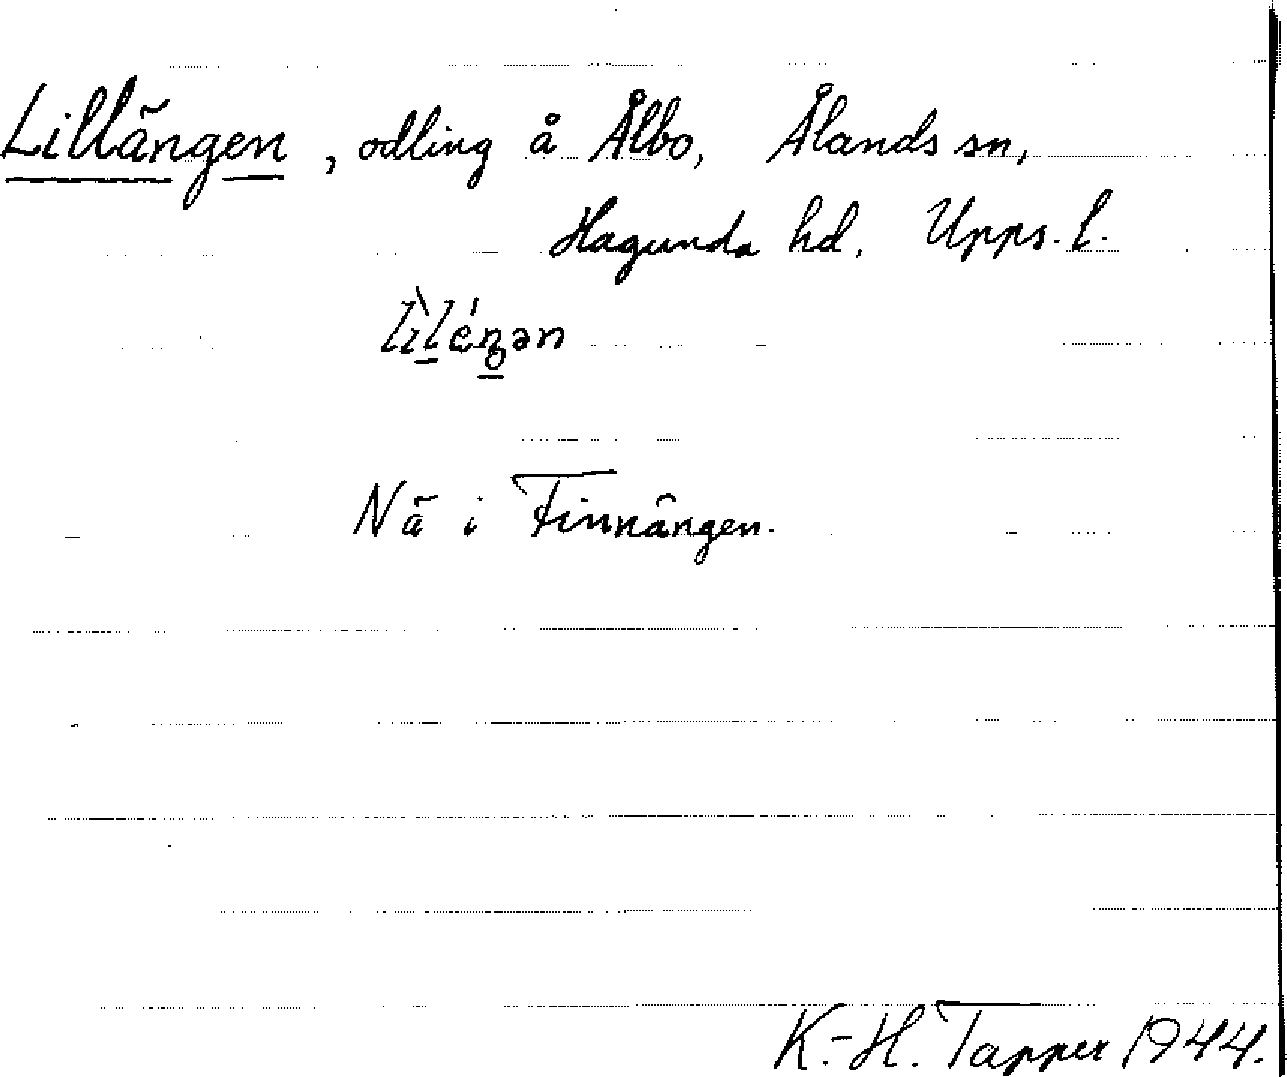 Lillängen, odling å Ålbo, Ålands sn,
Hagunda hd. Upps. l.
Nä i Finnängen.
K.-H. Tapper 1944.